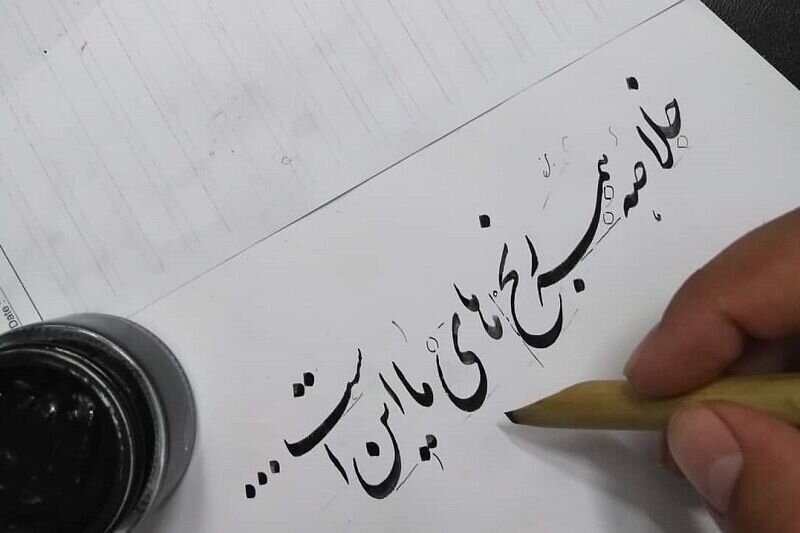 خلاصه همه رنج های ما این است ...
Date: